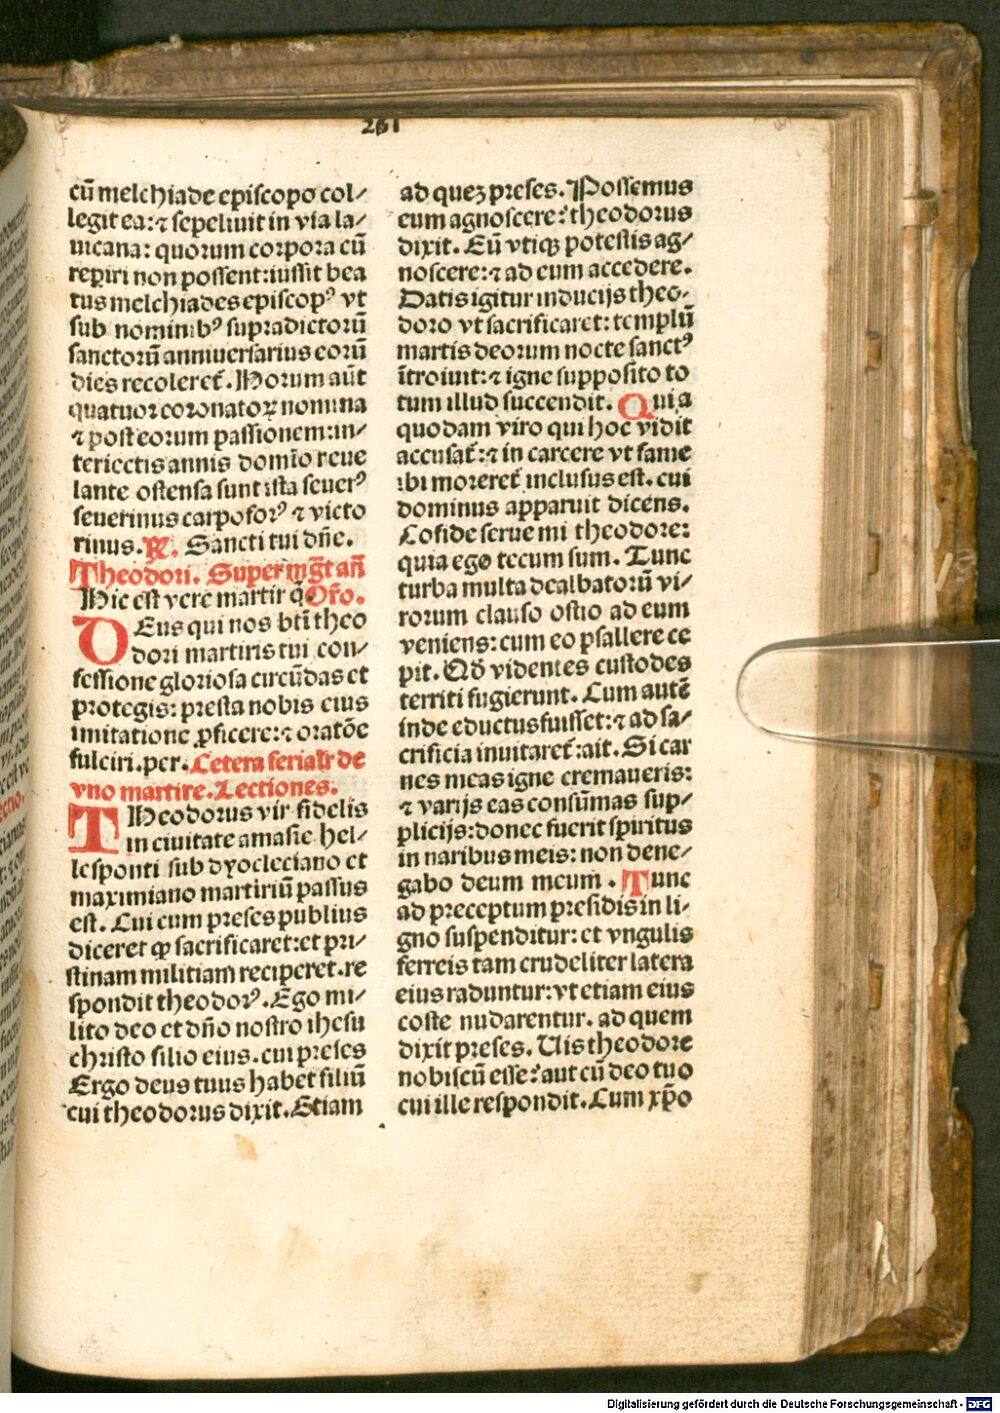 261
cū melchiade episcopo col⸗
legit ea: ⁊ sepeliuit in via la⸗
uicana: quorum corpora cū
reperiri non possent: iussit bea
tus melchiades episcopꝰ vt
sub nominibꝰ supradictorū
sanctorū anniuersarius eorū
dies recoleret̄. Horum aūt
quatuor coronatoꝝ nomina
⁊ post eorum passionem: in⸗
teriectis annis domīo reue
lante ostensa sunt ista seuerꝰ
seuerinus carpoforꝰ ⁊ victo
rinus. ℟. Sancti tui dn̄e.
Theodori. Super mḡt an̄
Hic est vere martir q̄. Or̄o.
DEus qui nos btī theo
dori martiris tui con⸗
fessione gloriosa circūdas et
protegis: presta nobis eius
imitatione ꝓficere: ⁊ oratōe
fulciri. per. Cetera serialr̄ de
vno martire. Lectiones.
THeodorus vir fidelis
in ciuitate amasie hel⸗
lesponti sub dyocleciano et
maximiano martiriū passus
est. Cui cum preses publius
diceret ꝙ sacrificaret: et pri⸗
stinam militiam reciperet. re
spondit theodorꝰ. Ego mi⸗
lito deo et dn̄o nostro ihesu
christo filio eius. cui preses
Ergo deus tuus habet filiū
cui theodorus dixit. Etiam
ad quez preses. Possemus
eum agnoscere? theodorus
dixit. Eū vtiqꝫ potestis ag⸗
noscere: ⁊ ad eum accedere.
Datis igitur inducijs theo⸗
doro vt sacrificaret: templū
martis deorum nocte sanctꝰ
ītroiuit: ⁊ igne supposito to
tum illud succendit. Qui a
quodam viro qui hoc vidit
accusat̄: ⁊ in carcere vt fame
ibi moreret̄ inclusus est. cui
dominus apparuit dicens.
Cōfide serue mi theodore:
quia ego tecum sum. Tunc
turba multa dealbatorū vi⸗
rorum clauso ostio ad eum
veniens: cum eo psallere ce
pit. Qd̄ videntes custodes
territi fugierunt. Cum autē
inde eductus fuisset: ⁊ ad sa⸗
crificia inuitaret̄: ait. Si car
nes meas igne cremaueris:
⁊ varijs eas consūmas sup⸗
plicijs: donec fuerit spiritus
in naribus meis: non dene⸗
gabo deum meum. Tunc
ad preceptum presidis in li⸗
gno suspenditur: et vngulis
ferreis tam crudeliter latera
eius raduntur: vt etiam eius
coste nudarentur. ad quem
dixit preses. Uis theodore
nobiscū esse? aut cū deo tuo
cui ille respondit. Cum xp̄o
Digitalisierung gefördert durch die Deutsche Forschungsgemeinschaft - DFG